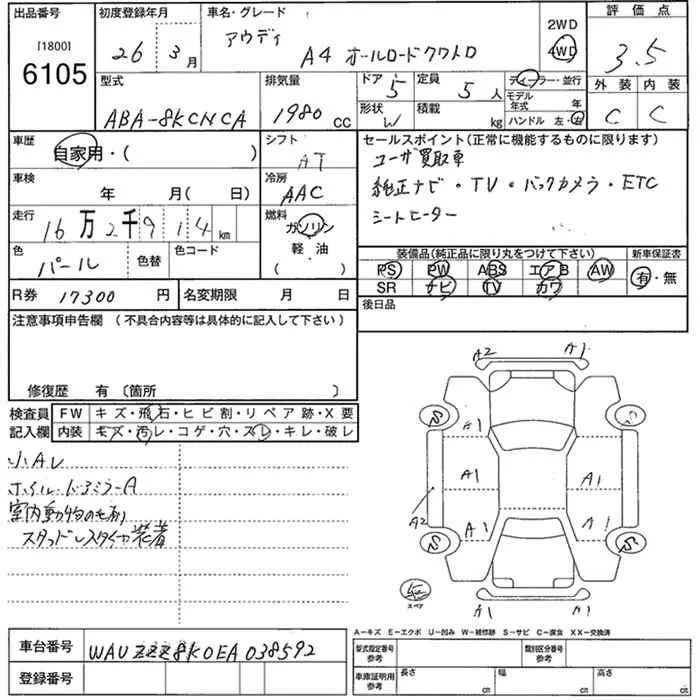 出品番号 初度登録年月 車名・グレード 2WD 評価点
[1800] 26 3月 アウディ A4 オールロードクワトロ 4WD 3.5
6105 型式 排気量 ドア 5 定員 5人 ディーラー・並行 外装 内装
ABA-8KCNCA 1980cc 形状 W 積載 kg モデル年式 年 C C
ハンドル 左・右
車歴 シフト セールスポイント(正常に機能するものに限ります)
自家用・( ) AT ユーザ買取車
車検 冷房 純正ナビ・TV・バックカメラ・ETC
年 月(日) AAC シートヒーター
走行 16万2千914km 燃料 ガソリン
軽・油
( ・ )
色 パール 色替 色コード 装備品(純正品に限り丸をつけて下さい) 新車保証書
PS PW ABS エアB AW 有・無
R券 17300円 名変期限 月 日 SR ナビ TV カワ
注意事項申告欄(不具合内容等は具体的に記入して下さい) 後日品
修復歴 有〔箇所 〕
検査員 FW キズ・飛石・ヒビ割・リペア跡・X要
記入欄 内装 キズ・汚レ・コゲ・穴・スレ・キレ・破レ
小Aレ
ホイル・ドアミラーA
室内動物の毛あり
スタッドレスタイヤ装着
A2 A1
S S
A1
A1 A1
A2 A1 A1
S S
スペア
A1 A1
A-キズ E-エクボ U-凹み W-補修跡 S-サビ C-腐食 XX-交換済
車台番号 WAUZZZ8K0EA038592 型式指定番号 参考 類別区分番号 参考
登録番号 車庫証明用 参考 長さ cm 幅 cm 高さ cm